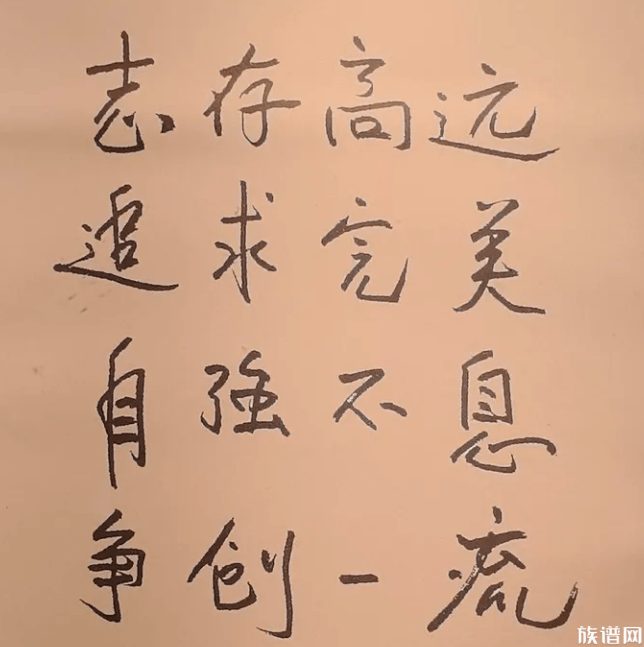 志存高远
追求完美
自强不息
争创一流
族谱网